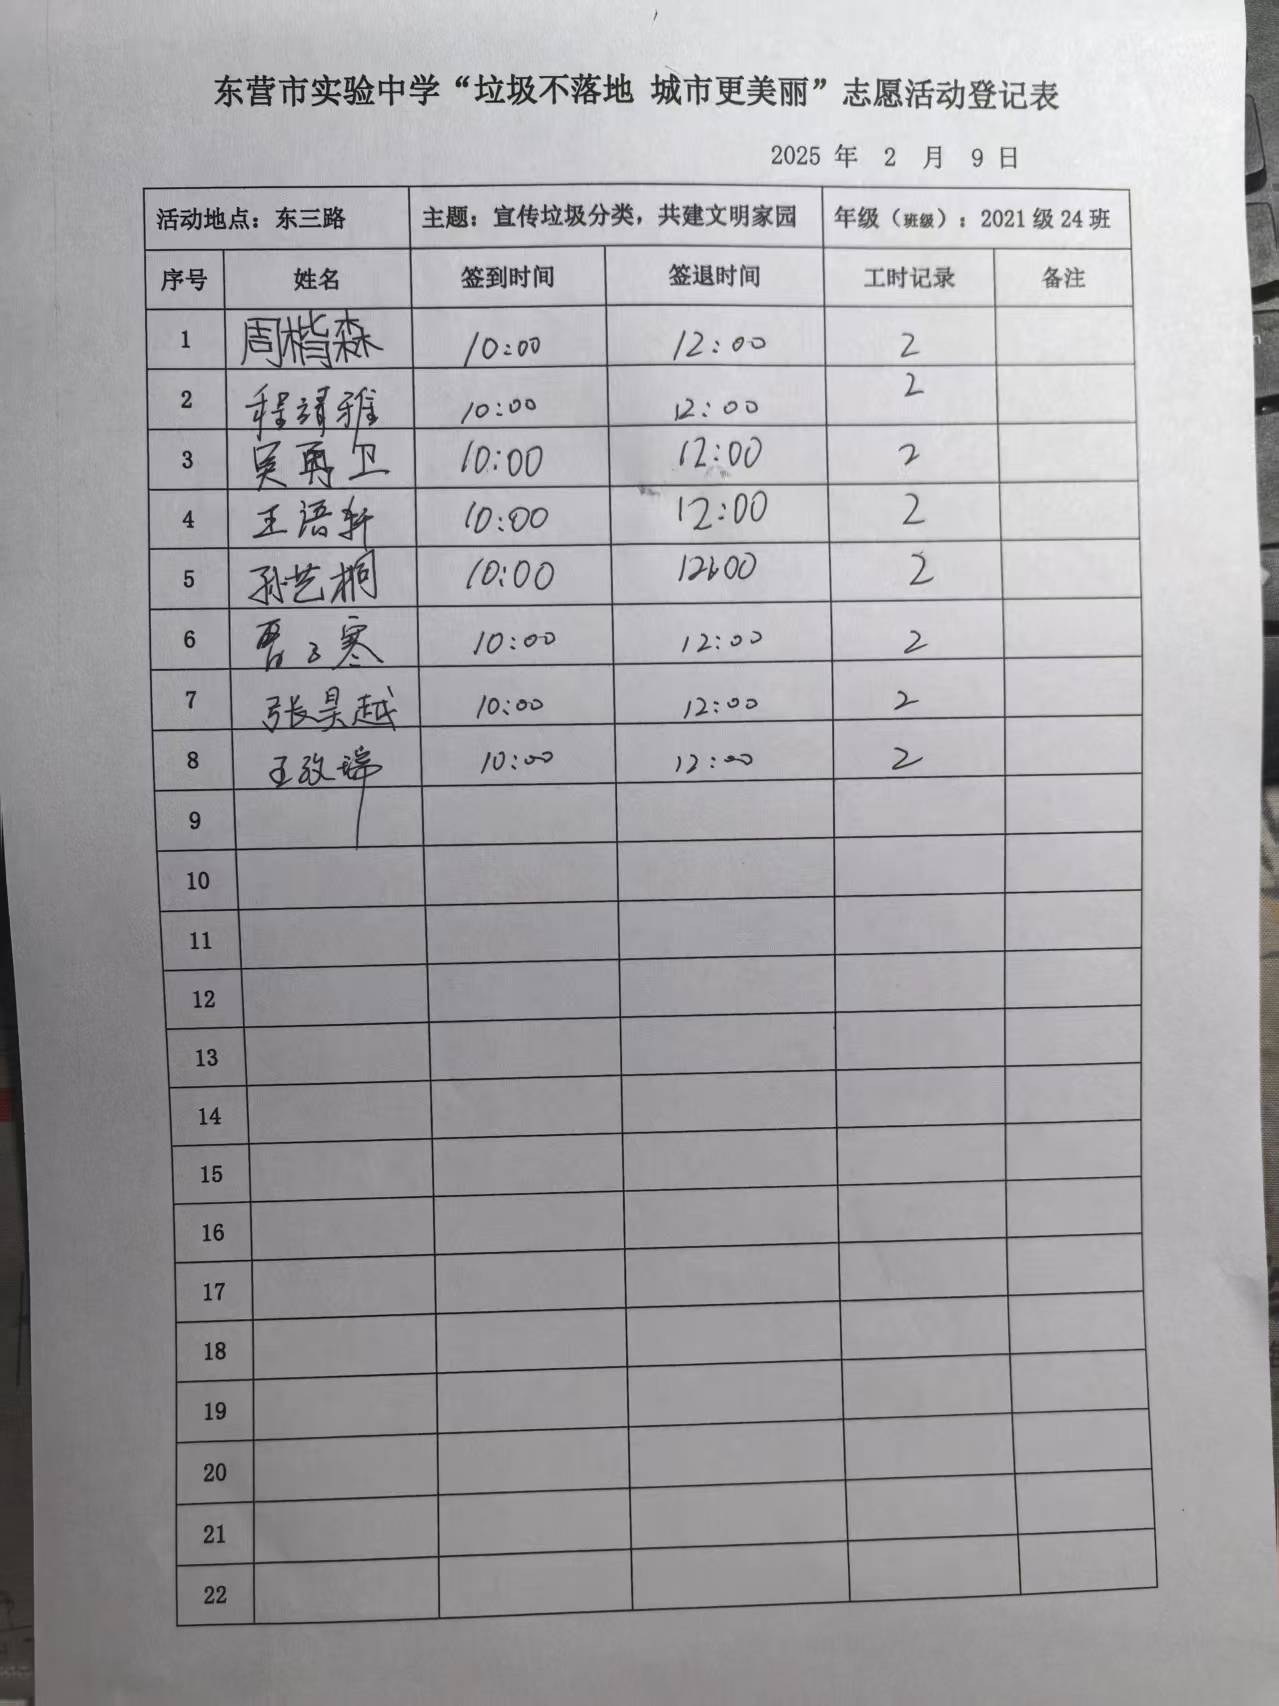 东营市实验中学“垃圾不落地 城市更美丽”志愿活动登记表
2025 年 2 月 9 日
活动地点：东三路 主题：宣传垃圾分类，共建文明家园 年级（班级）：2021级24班
序号 姓名 签到时间 签退时间 工时记录 备注
1 周楷森 10:00 12:00 2
2 程靖雅 10:00 12:00 2
3 吴再卫 10:00 12:00 2
4 王语轩 10:00 12:00 2
5 孙艺桐 10:00 12:00 2
6 曹子寒 10:00 12:00 2
7 张昊越 10:00 12:00 2
8 王玫瑞 10:00 12:00 2
9
10
11
12
13
14
15
16
17
18
19
20
21
22